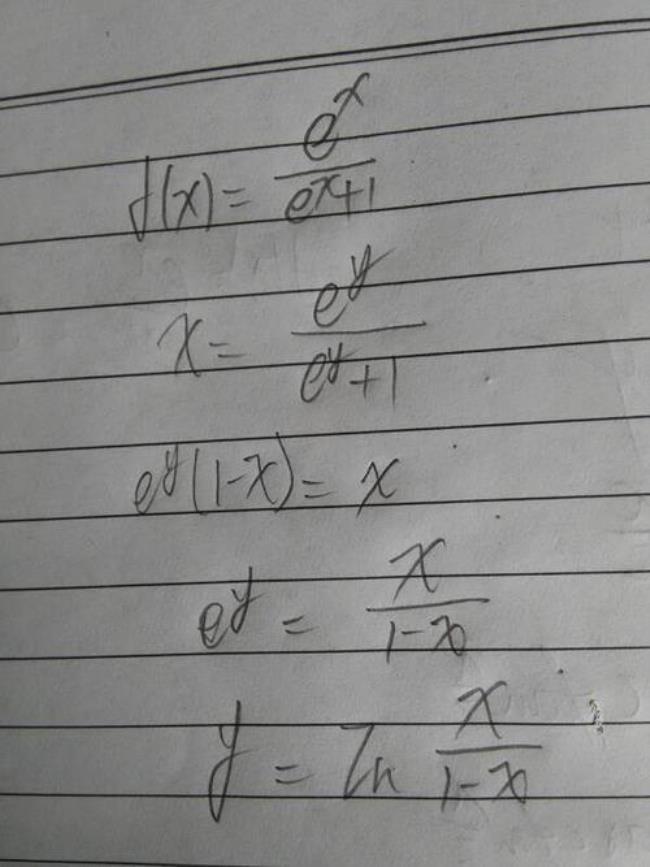 f(x) = e^x / (e^x+1)
x = e^y / (e^y+1)
e^y(1-x) = x
e^y = x / (1-x)
y = ln x / (1-x)